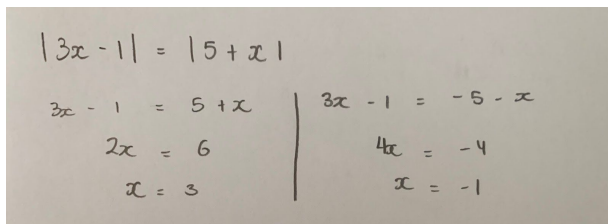 |3x - 1| = |5 + x|
3x - 1 = 5 + x
2x = 6
x = 3
3x - 1 = -5 - x
4x = -4
x = -1